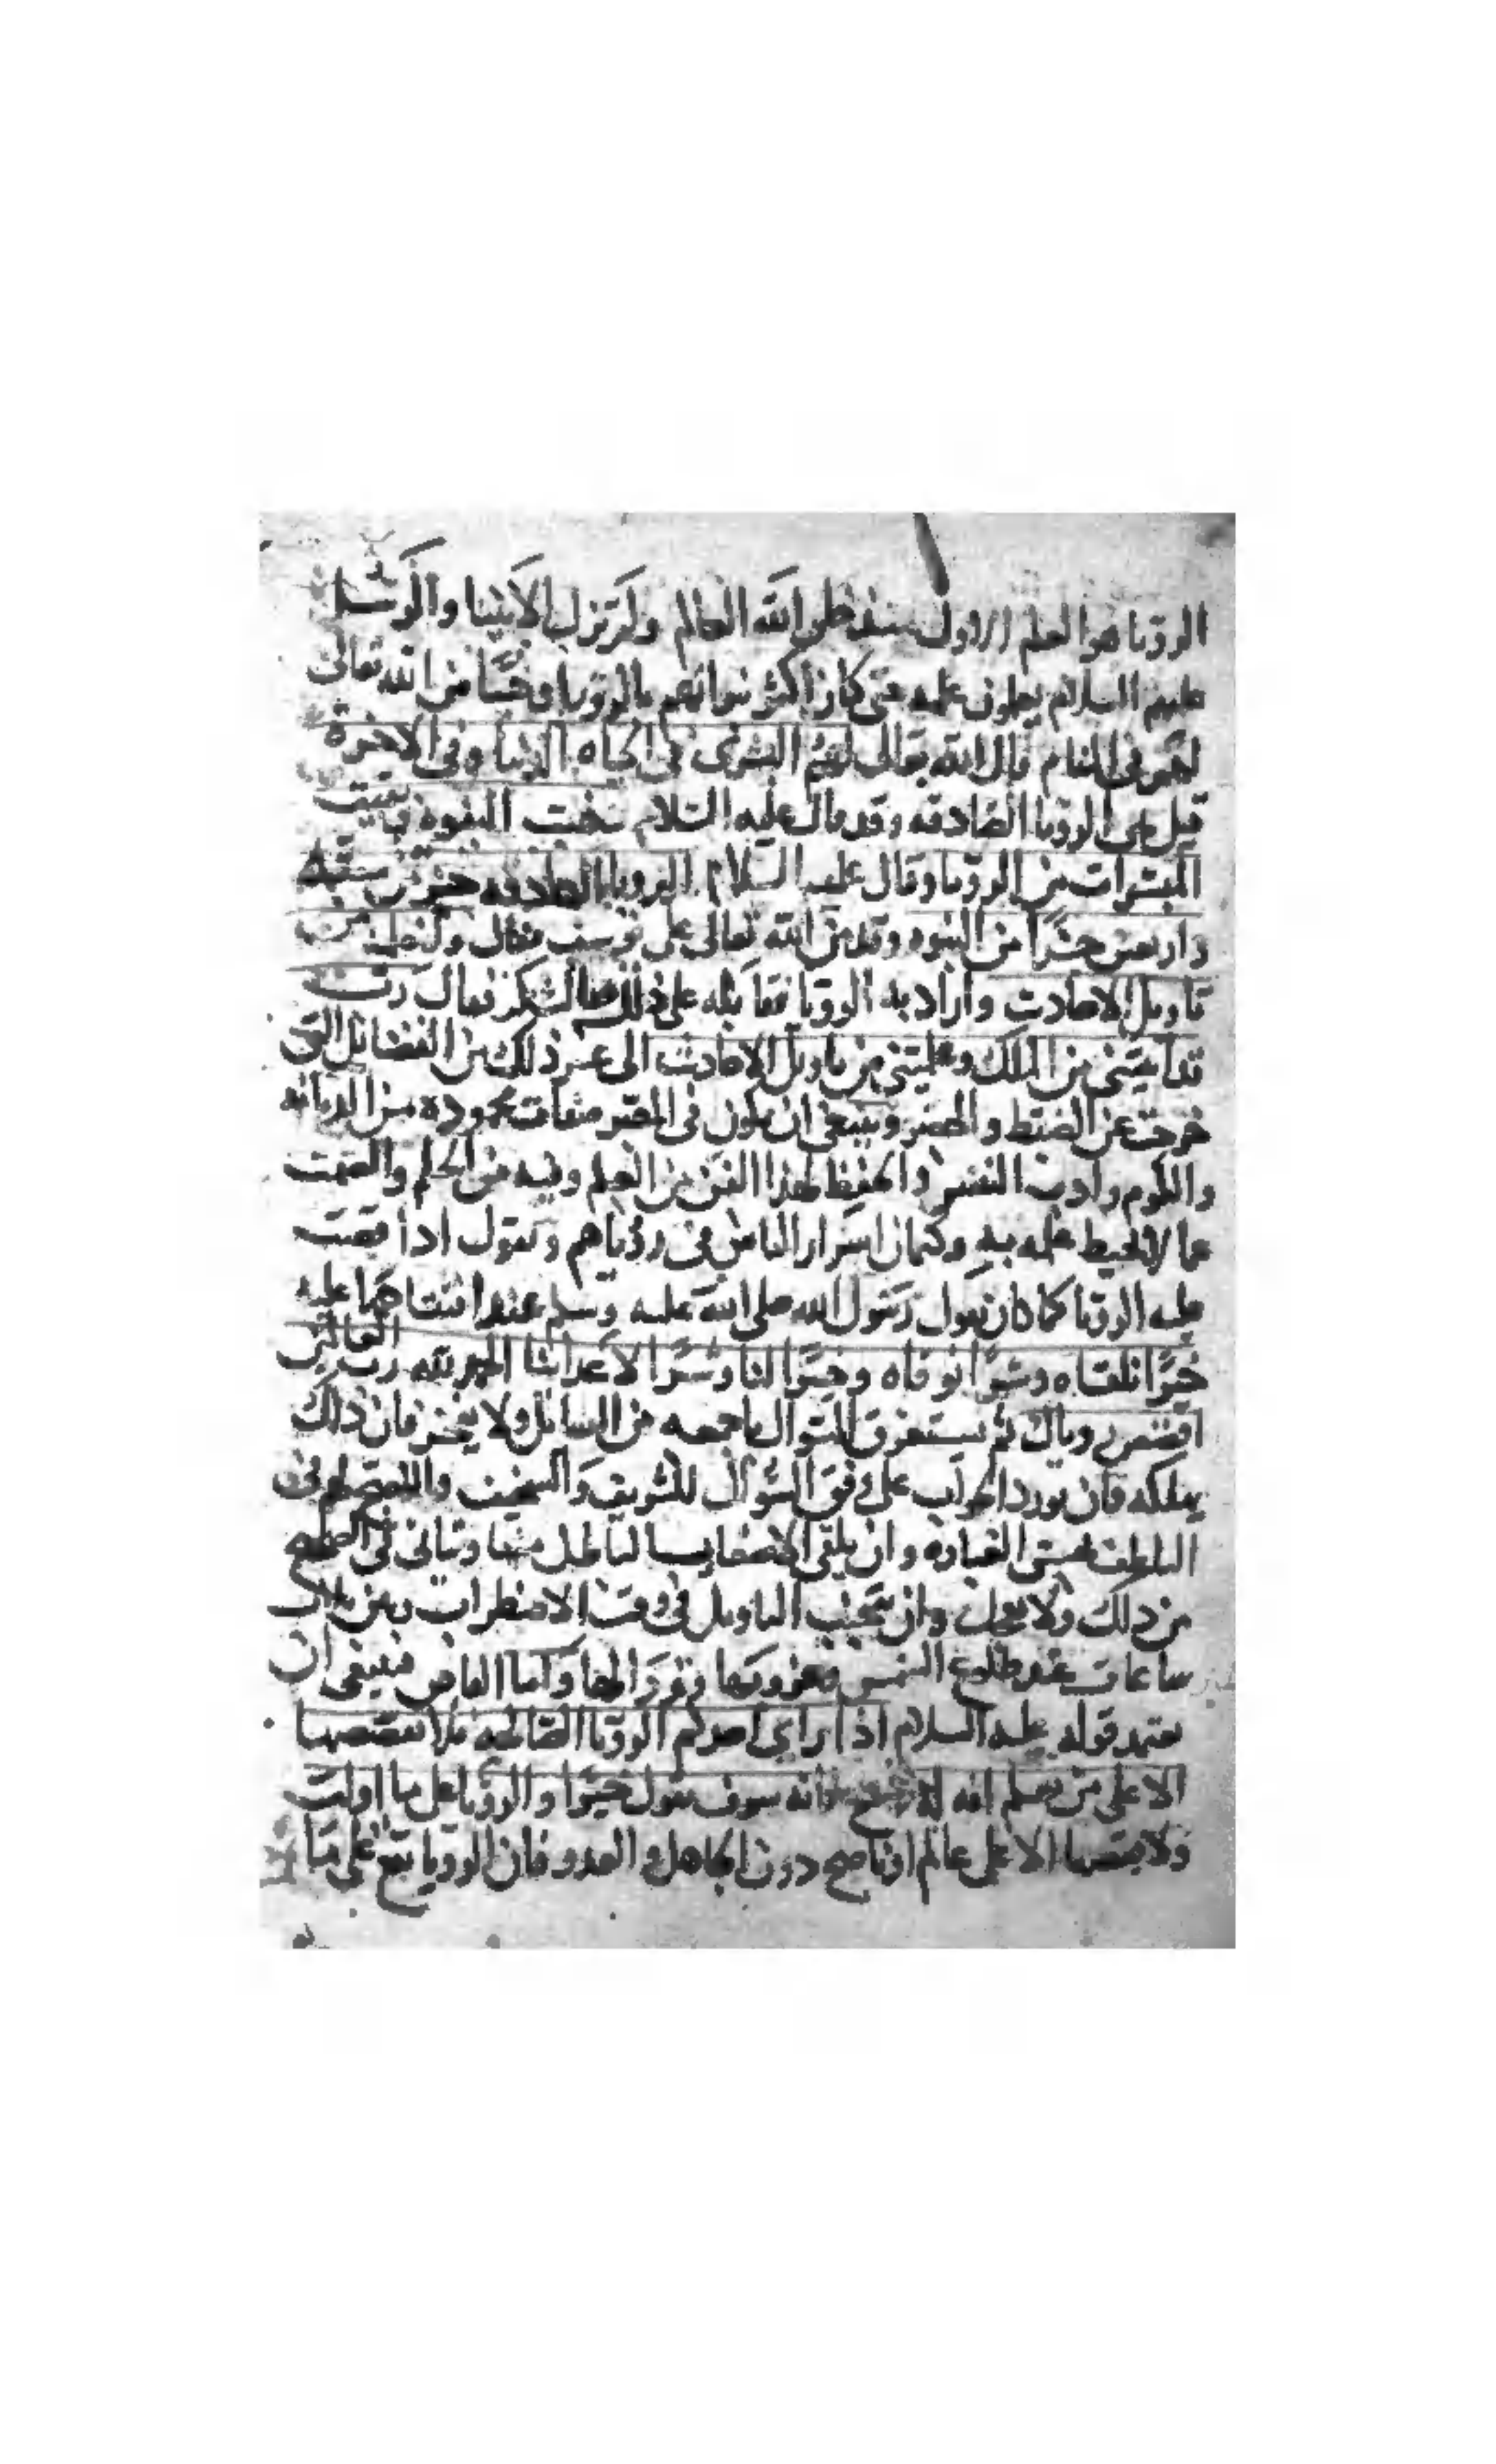 الرؤيا هوا لعلم الاول منذ خلق الله العالم ولم تزل الانبيا والرسل
عليهم السلام يعملون عليه حتى كان اكثر نبواتهم بالرؤيا وحيا من الله تعالى
لهم في المنام قال الله تعالى لهم البشرى في الحياه الدنيا وفي الاخرة
قيل هي الرويا الصادقه وقد قال عليه السلام ذهبت النبوه وبقيت
المبشرات من الرويا وقال عليه السلام الرويا الصادقه جز من ستة
واربعين جزا من النبوه وقد من الله تعالى على يوسف فقال ولنعلمه من
تاويل الاحاديث واراد به الرويا فقابله على ذلك بالشكر فقال رب
قد اتيتني من الملك وعلمتني من تاويل الاحاديث الى غير ذلك من الفضائل التي
خرجت عن الضبط والحصر وينبغي ان يكون في المعبر صفات محموده من الديانه
والكرم وادب النفس والحفظ لهذا الفن من العلم وفيه من الحلم والصمت
عما لا يحيط علمه به وكتمان اسرار الناس في رؤياهم ويقول اذا قصت
عليه الرويا كما كان يقول رسول الله صلى الله عليه وسلم عند افتتاحها عليه
خيرا نلقاه وشرا نوقاه وخيرا لنا وشرا لاعداينا الحمد لله رب العالمين
اقصص روياك ثم يستغرق السوال باجمعه من السائل ولا يضجر فان ذلك
يملكه وان يورد الجواب على وفق السؤال للشريف والضعيف
وان يلقى الاضغاث الباطل منها ويتانى في الصحيح
من ذلك ولا يعجل وان يتجنب التاويل في وقت الاضطراب وهن ثلاث
ساعات عند طلوع الشمس وغروبها وعند زوالها واما القاص فينبغي ان
يعتمد قوله عليه السلام اذا راى احدكم الرويا الصالحه فلا يقصها
الا على من يعلم انه فانه سوف يقول خيرا والرؤيا على ما اولت
ولا يقصها الا على عالم او ناصح دون الجاهل والعدو فان الرويا تقع على ما